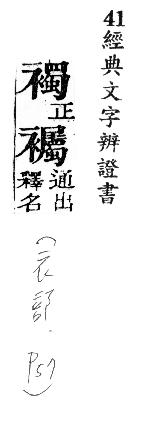 41 經典文字辨證書
襡 正
通出
釋名
(衣部. P57)